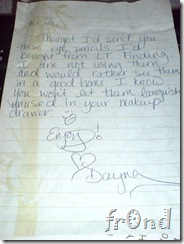 Thought I'd send you
these eye pencils I'd
bought from LT. Finding
I am not using them
and would rather see them
in a good home. I know
you won't let them languish
unused in your makeup
drawer.
Enjoy!
Dayna
fr0nd